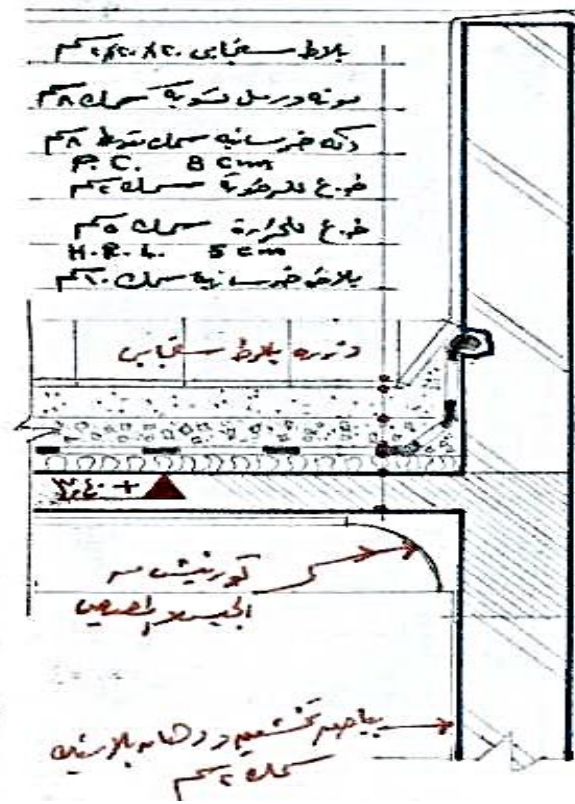 بلاط سنجابى ٢٠×٢٠×٢ سم
مونه ورمل تسويه سمك ٨ سم
دكه خرسانيه سمك متوسط ٨ سم
P. C. 8 Cm
طبقة عازلة للرطوبة سمك ٢ سم
عازلة للحرارة سمك ٥ سم
H. R. L. 5 cm
بلاطه خرسانية سمك ٢٠ سم
وزره بلاط سنجابى
+ ٣,٤٠
كورنيش من
الجبس المصيص
بياض تخشين ودهان بلاستيك
سمك ٢ سم